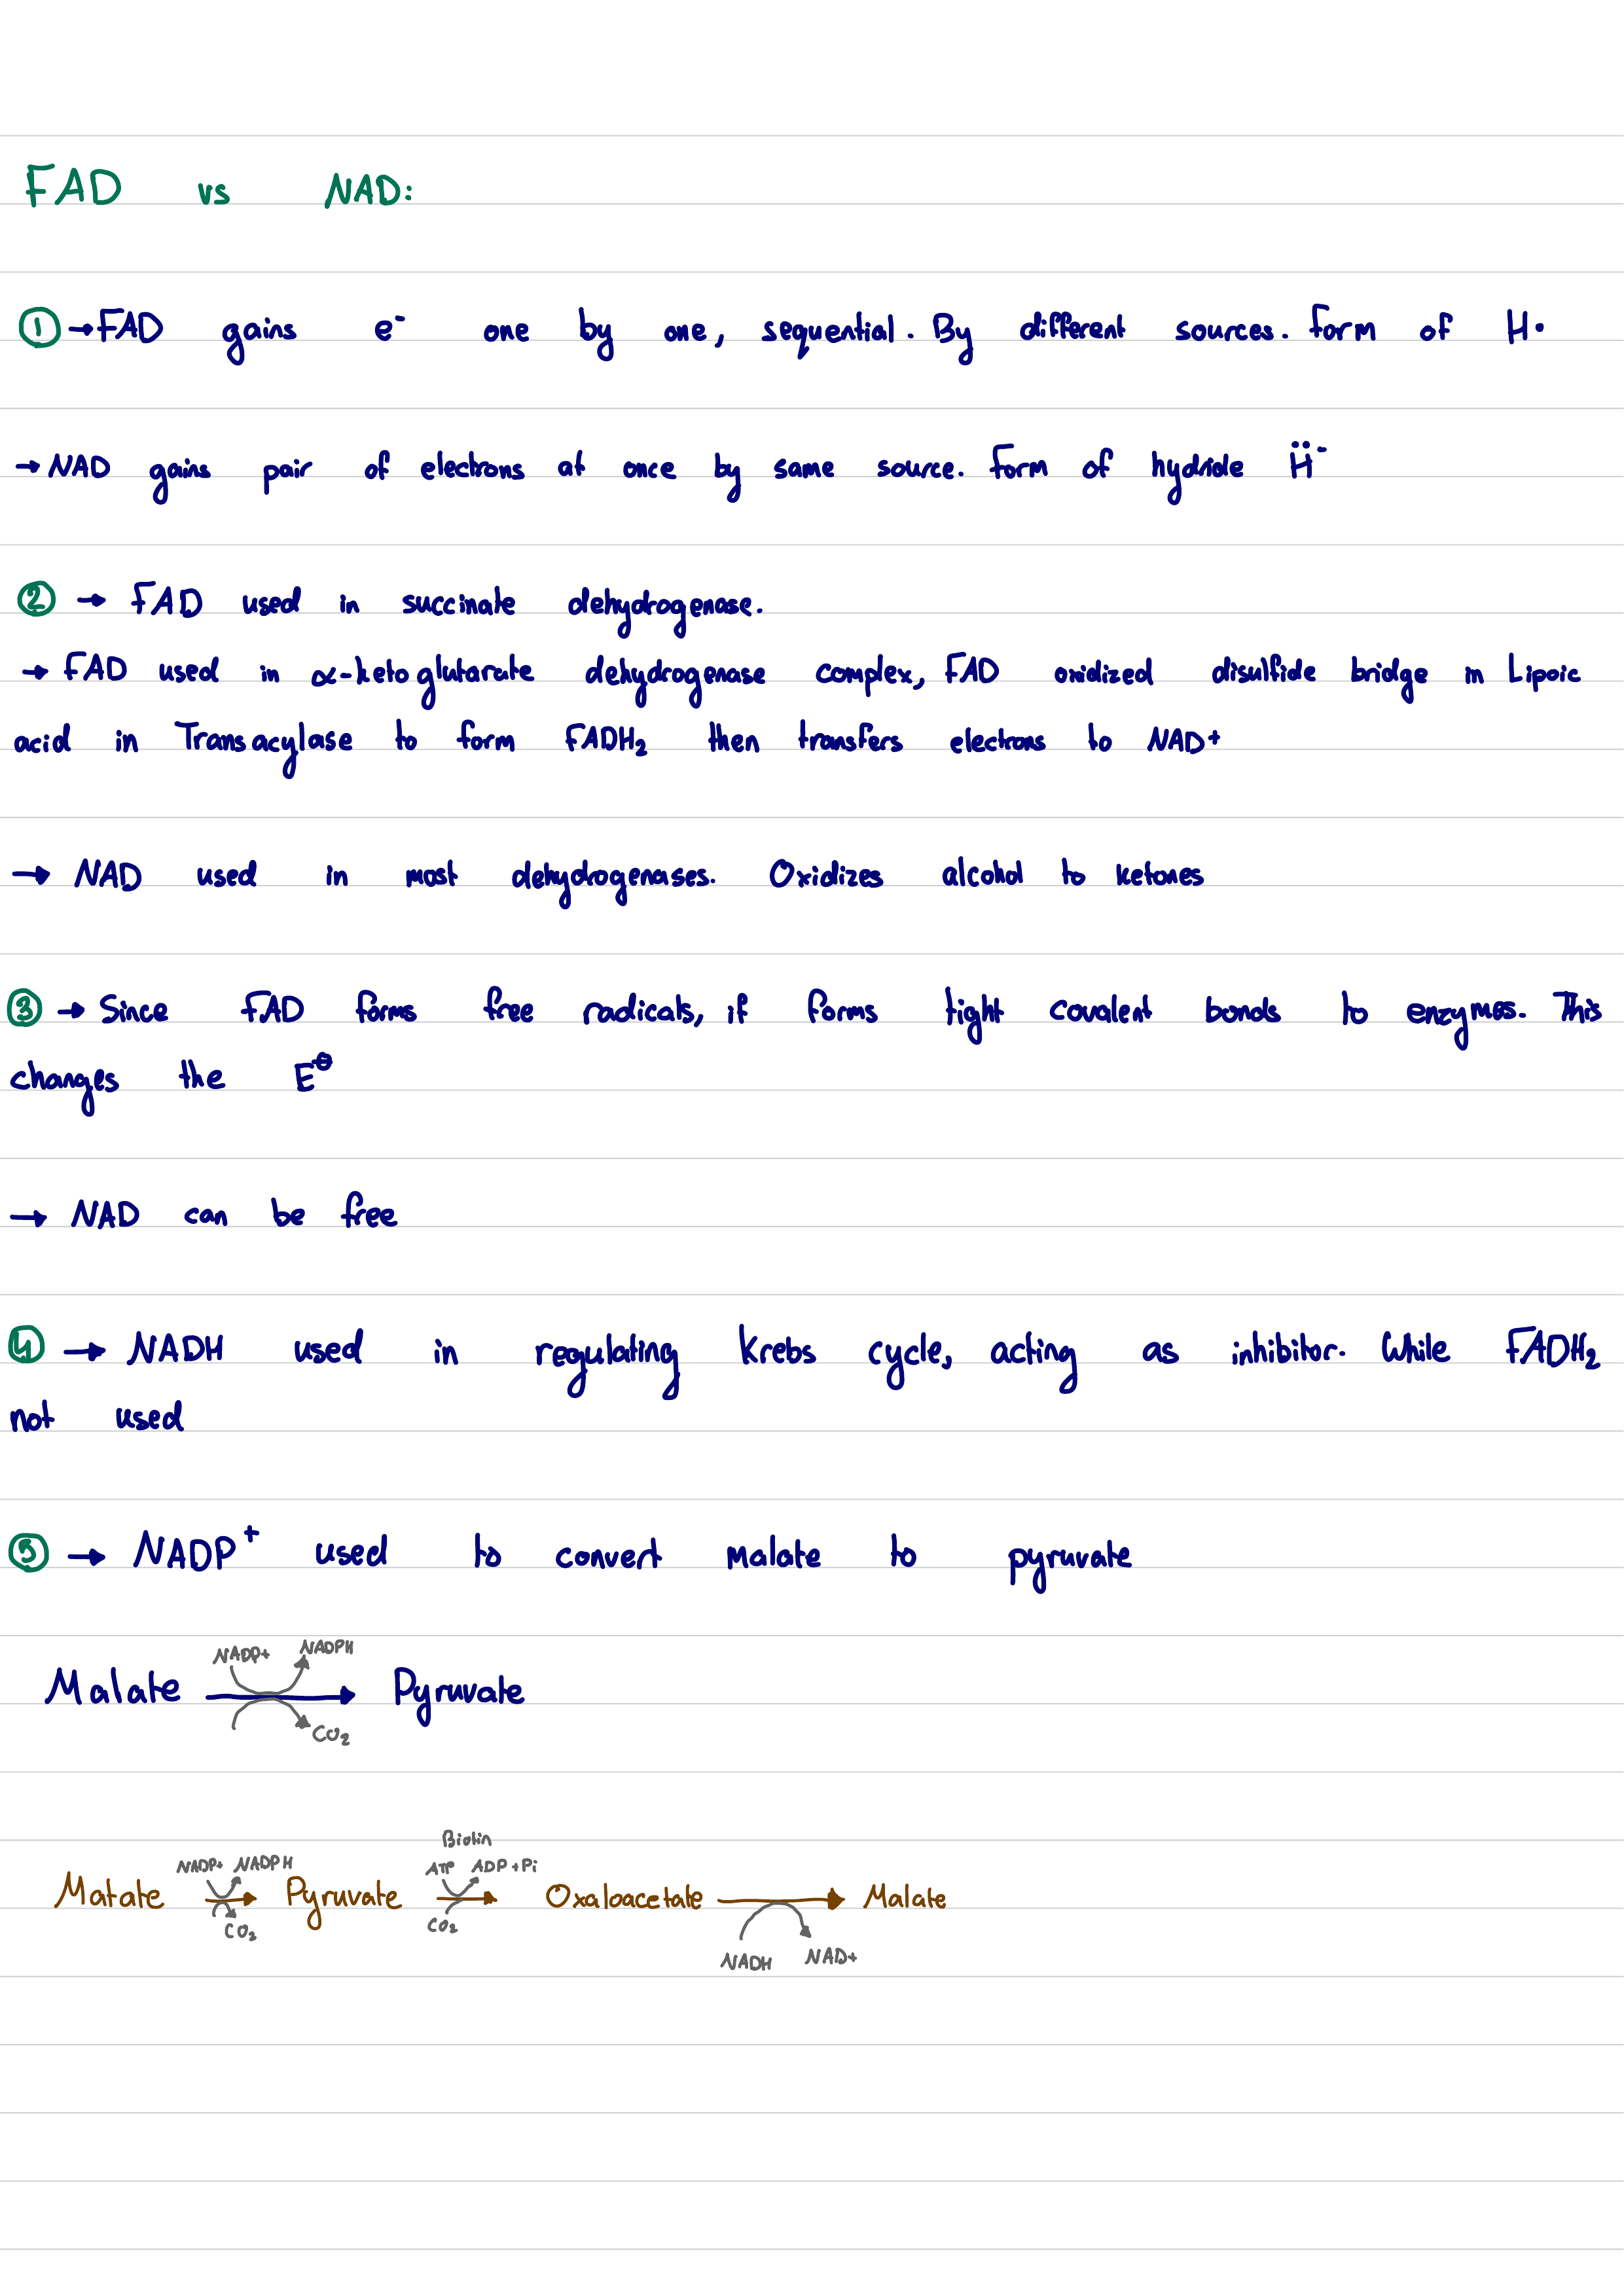 FAD vs NAD:
① → FAD gains e⁻ one by one, sequential. By different sources. Form of H•
→ NAD gains pair of electrons at once by same source. Form of hydride Ḧ⁻
② → FAD used in succinate dehydrogenase.
→ FAD used in α-ketoglutarate dehydrogenase complex, FAD oxidized disulfide bridge in Lipoic
acid in Transacylase to form FADH₂ then transfers electrons to NAD+
→ NAD used in most dehydrogenases. Oxidizes alcohol to ketones
③ → Since FAD forms free radicals, it forms tight covalent bonds to enzymes. This
changes the E⊖
→ NAD can be free
④ → NADH used in regulating Krebs cycle, acting as inhibitor. While FADH₂
not used
⑤ → NADP⁺ used to convert malate to pyruvate
NADP+ NADPH
Malate → Pyruvate
CO₂
Biotin
NADP+ NADPH ATP ADP+Pi
Malate → Pyruvate → Oxaloacetate → Malate
CO₂ CO₂
NADH NAD+